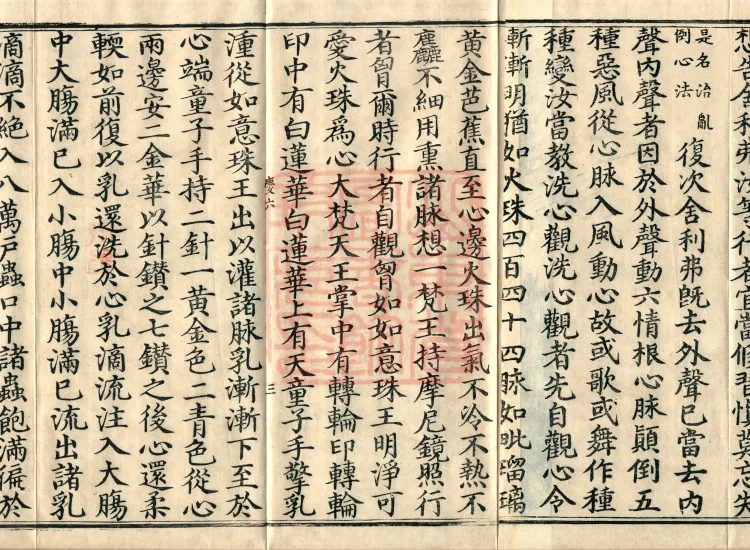 舍利弗汝等行者宜當
是名治亂
倒心法
復次舍利弗旣去外聲已當去內
聲內聲者因於外聲動六情根心脉顚倒五
種惡風從心脉入風動心故或歌或舞作種
種變汝當教洗心觀洗心觀者先自觀心令
漸漸明猶如火珠四百四十四脉如毗瑠璃
黃金芭蕉直至心邊火珠出氣不冷不熱不
麤不細用熏諸脉想一梵王持摩尼鏡照行
者胷爾時行者自觀胷如如意珠王明淨可
愛火珠爲心大梵天王掌中有轉輪印轉輪
印中有白蓮華白蓮華上有天童子手擎乳
慶六 三
湩從如意珠王出以灌諸脉乳漸漸下至於
心端童子手持二針一黃金色二青色從心
兩邊安二金華以針鑽之七鑽之後心還柔
輭如前復以乳還洗於心乳滴流注入大膓
中大膓滿已入小膓中小膓滿已流出諸乳
滴滴不絕入八萬戶蟲口中諸蟲飽滿徧於